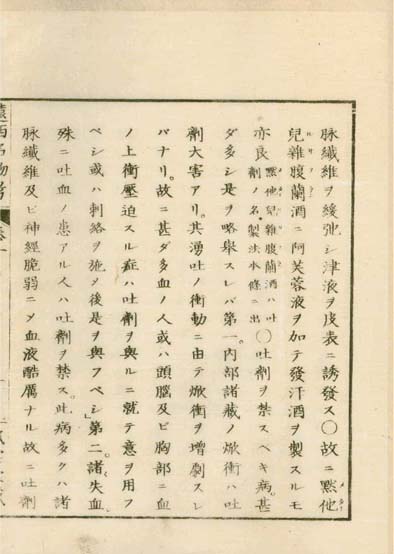 脉纎維ヲ緩弛シ津液ヲ皮表ニ誘發ス〇故ニ㸃他
兒雜腹蘭酒ニ阿芙蓉液ヲ加テ發汗酒ヲ製スルモ
亦良㸃他兒雜腹蘭酒ハ吐劑ノ名製法水條ニ出〇吐劑ヲ禁スベキ病甚
ダ多シ是ヲ略舉スレバ第一内部諸藏ノ焮衝ハ吐
劑大害アリ其湧吐ノ衝動ニ由テ焮衝ヲ増劇スレ
バナリ故ニ甚ダ多血ノ人或ハ頭腦及ビ胸部ニ血
ノ上衝壓迫スル症ハ吐劑ヲ與ルニ就テ意ヲ用フ
ベシ或ハ刺絡ヲ施メ後是ヲ與フベシ」第二諸失血
殊ニ吐血ノ患アル人ハ吐劑ヲ禁ス此病多クハ諸
脉纎維及ビ神經脆弱ニメ血液酷厲ナル故ニ吐劑
西名物考 卷一